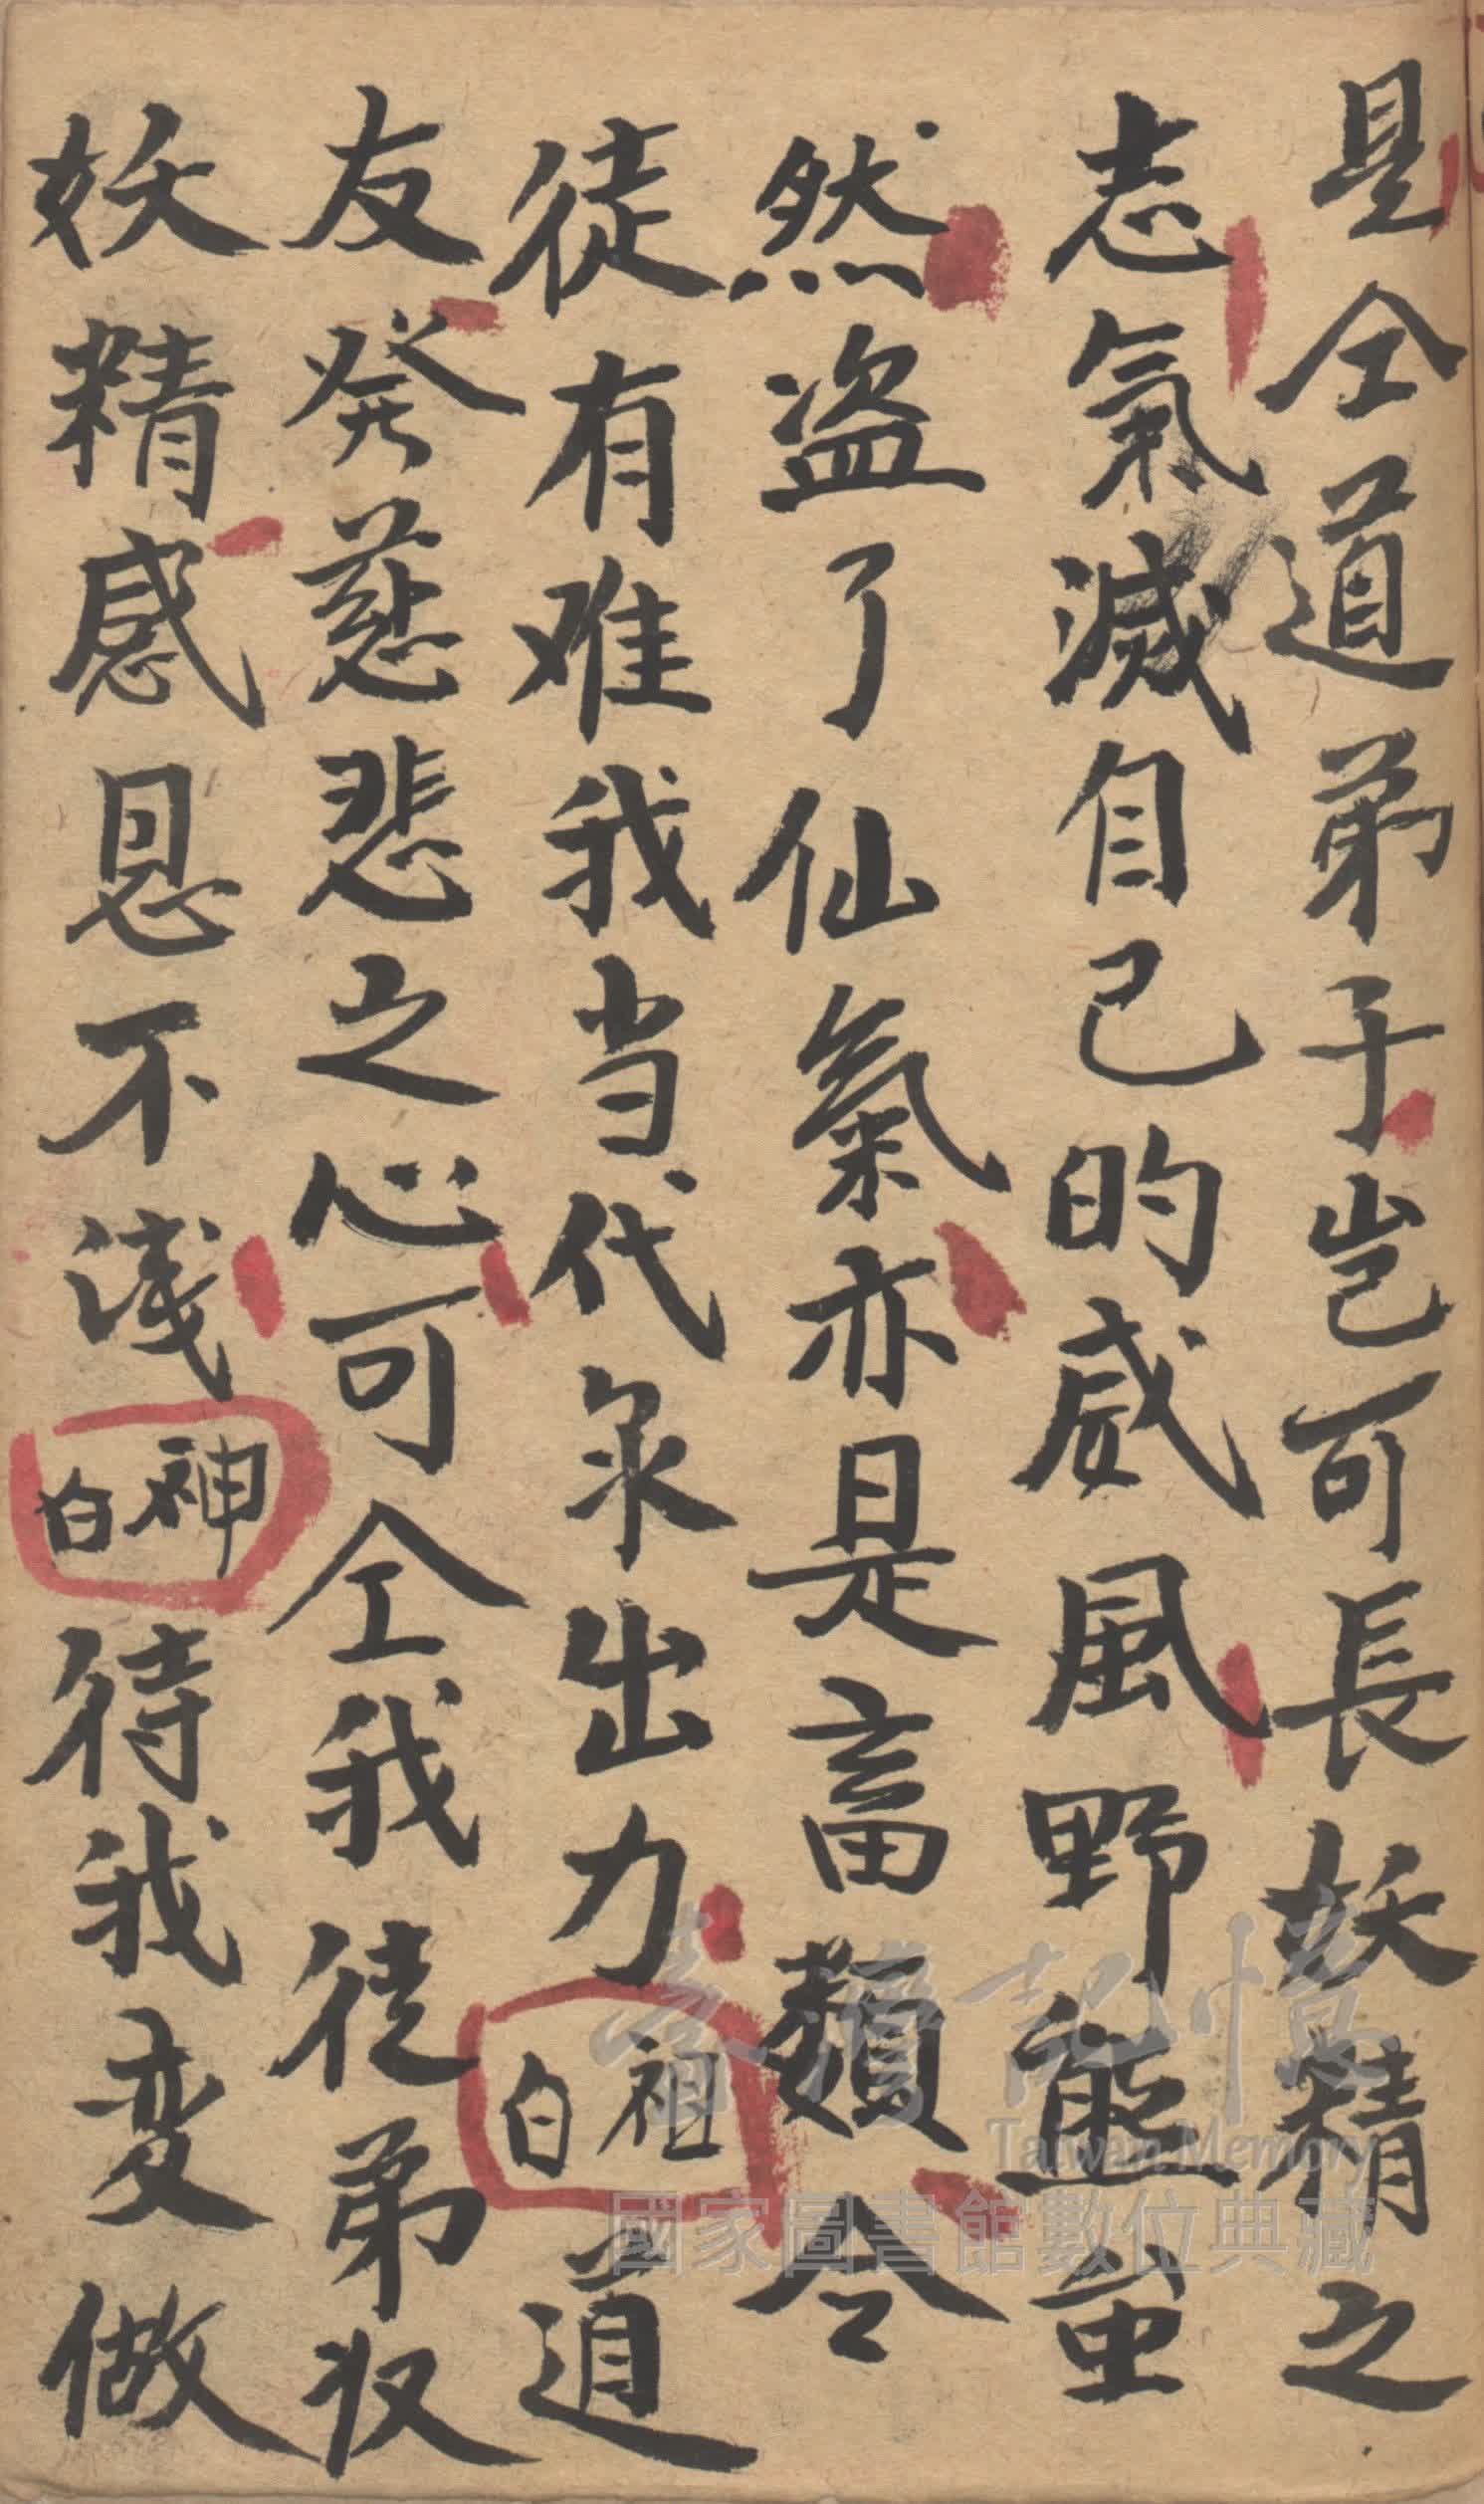 是仝道弟子岂可長妖精之
志氣滅自己的威風野熊蚩
然盗了仙氣亦是畜類今
徒有难我当代求出力祖白道
友発慈悲之心可仝我徒弟収
妖精感恩不浅神白待我变做
臺灣記憶
Taiwan Memory
國家圖書館數位典藏